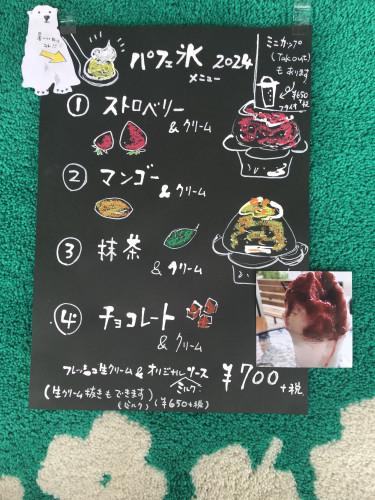 パフェ氷 2024
メニュー
ミニカップ
(Take out)
も あります
¥650
+税
① ストロベリー
& クリーム
② マンゴー
& クリーム
③ 抹茶
& クリーム
④ チョコレート
& クリーム
フレッシュ生クリーム & オリジナルソース
ミルク
¥700
+税
(生クリーム抜きもできます)
(ミルク) (¥650+税)